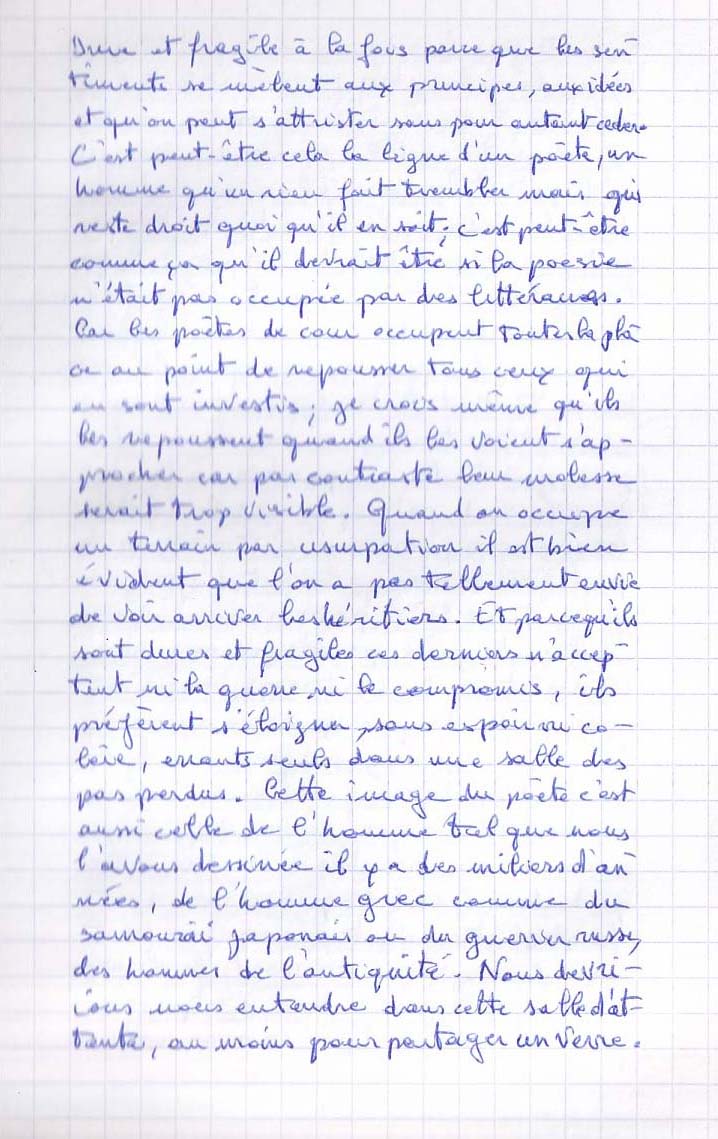 Dure et fragile à la fois parce que les sen
timents se mêlent aux principes, aux idées
et qu'on peut s'attrister sans pour autant ceder.
C'est peut-être cela la ligne d'un poète, un
homme qu'un rien fait trembler mais qui
reste droit quoi qu'il en soit; c'est peut-être
comme ça qu'il devrait être si la poesie
n'était pas occupée par des littéraires.
Car les poètes de cour occupent toute la pla
ce au point de repousser tous ceux qui
en sont investis; je crois même qu'ils
les repoussent quand ils les voient s'ap-
procher car par contraste leur molesse
serait trop visible. Quand on occupe
un terrain par usurpation il est bien
évident que l'on a pas tellement envie
de voir arriver les héritiers. Et parcequ'ils
sont dures et fragiles ces derniers n'accep-
tent ni la guerre ni le compromis, ils
préfèrent s'éloigner, sans espoir ni co-
lère, errants seuls dans une salle des
pas perdus. Cette image du poète c'est
aussi celle de l'homme tel que nous
l'avons dessinée il y a des milliers d'an
nées, de l'homme grec comme du
samouraï japonais ou du guerrier russe,
des hommes de l'antiquité. Nous devri-
ions nous entendre dans cette salle d'at-
tente, au moins pour partager un verre.